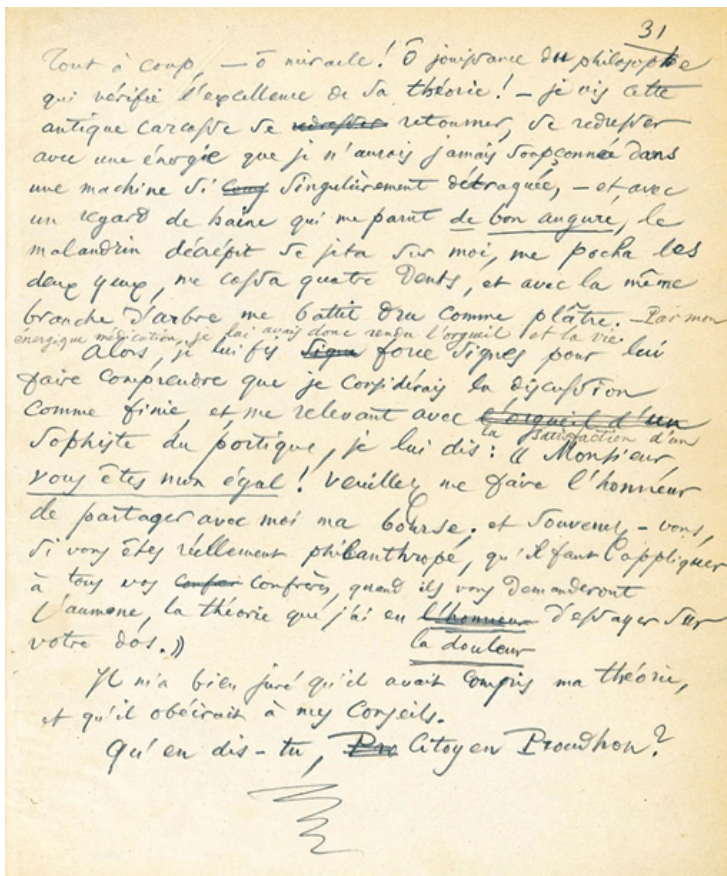 31
Tout à coup, — ô miracle! ô jouissance du philosophe
qui vérifie l'excellence de sa théorie! — je vis cette
antique carcasse se redresser retourner, se redresser
avec une énergie que je n'aurais jamais soupçonnée dans
une machine si singulièrement détraquée, — et, avec
un regard de haine qui me parut de bon augure, le
malandrin décrépit se jeta sur moi, me pocha les
deux yeux, me cassa quatre dents, et avec la même
branche d'arbre me battit dru comme plâtre. — Par mon
énergique médication, je lui avais donc rendu l'orgueil et la vie.
Alors, je lui fis signe force signes pour lui
faire comprendre que je considérais la discussion
comme finie, et me relevant avec l'orgueil d'un
la satisfaction d'un
sophiste du portique, je lui dis : « Monsieur,
vous êtes mon égal! veuillez me faire l'honneur
de partager avec moi ma bourse; et souvenez-vous,
si vous êtes réellement philanthrope, qu'il faut appliquer
à tous vos confrères, quand ils vous demanderont
l'aumone, la théorie que j'ai eu l'honneur d'essayer sur
votre dos. »
la douleur
Il m'a bien juré qu'il avait compris ma théorie,
et qu'il obéirait à mes conseils.
Qu'en dis-tu, Pro Citoyen Proudhon?